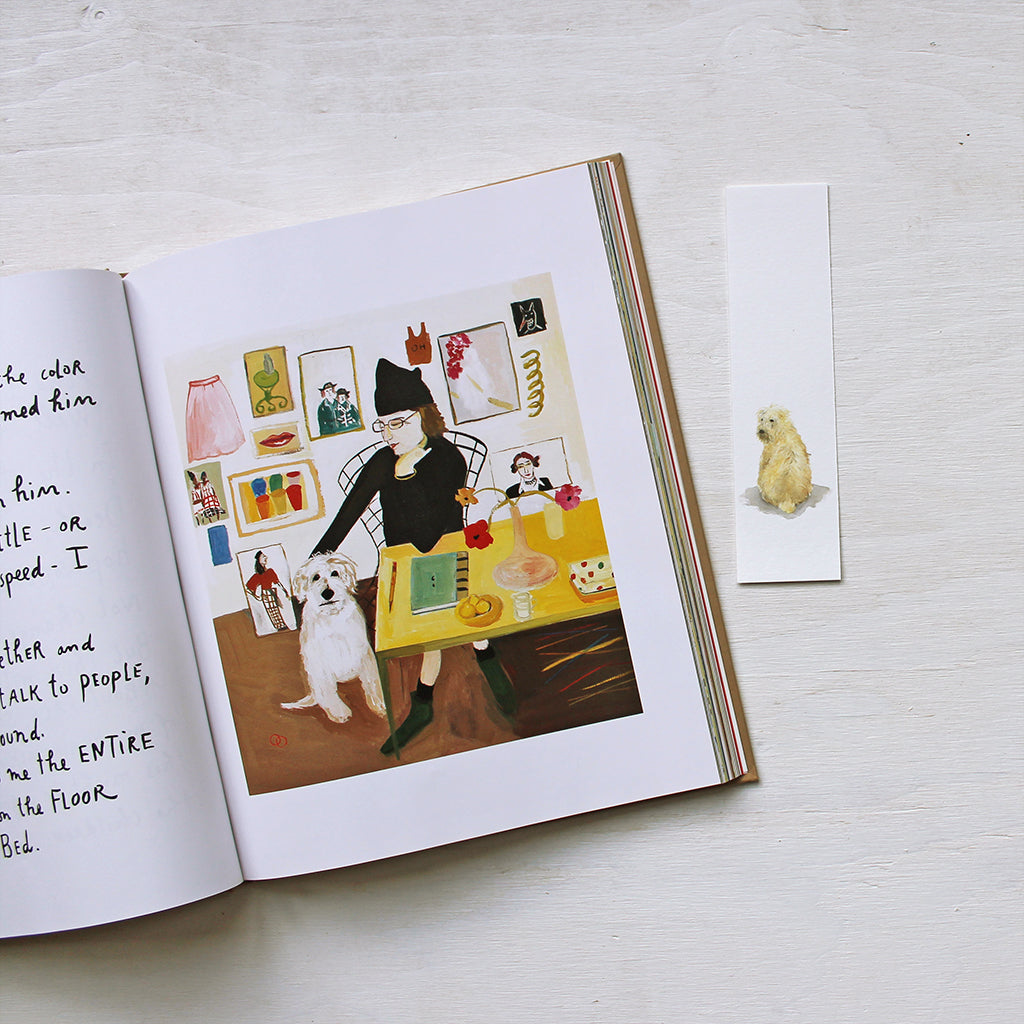 the color
med him
him.
OR
speed - I
and
TALK to PEOPLE,
ound.
me the ENTIRE
on the FLOOR
Bed.
OH